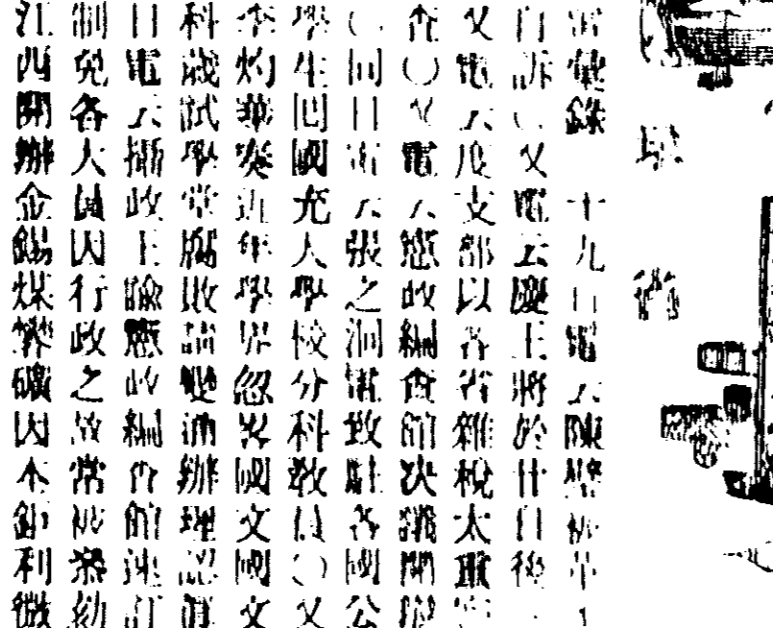 電彙錄 十九日電云陳璧被革
訴〇又電云慶王將於廿日後
又電云度支部以各省雜稅太重
查〇又電云憲政編查館決議開
〇回日電云張之洞電致駐各國公
學生回國充大學校分科教員〇又
李灼華奏近年學界忽畧國文國文
科歲試學堂腐敗請變通辦理認真
日電云攝政王諭憲政編查館速訂
制免各大員因行政之故常被參劾
江西開辦金錫煤等礦因本鉅利微